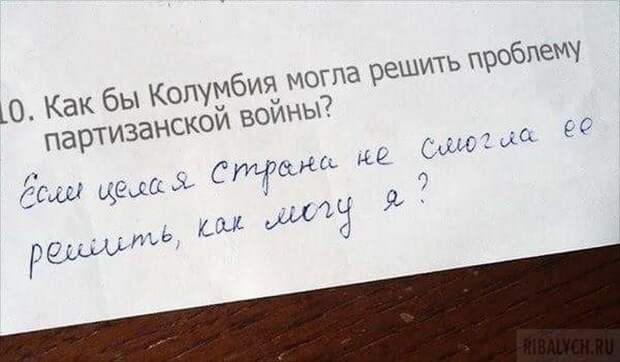 10. Как бы Колумбия могла решить проблему
партизанской войны?
Если целая страна не смогла ее
решить, как могу я?
RIBALYCH.RU